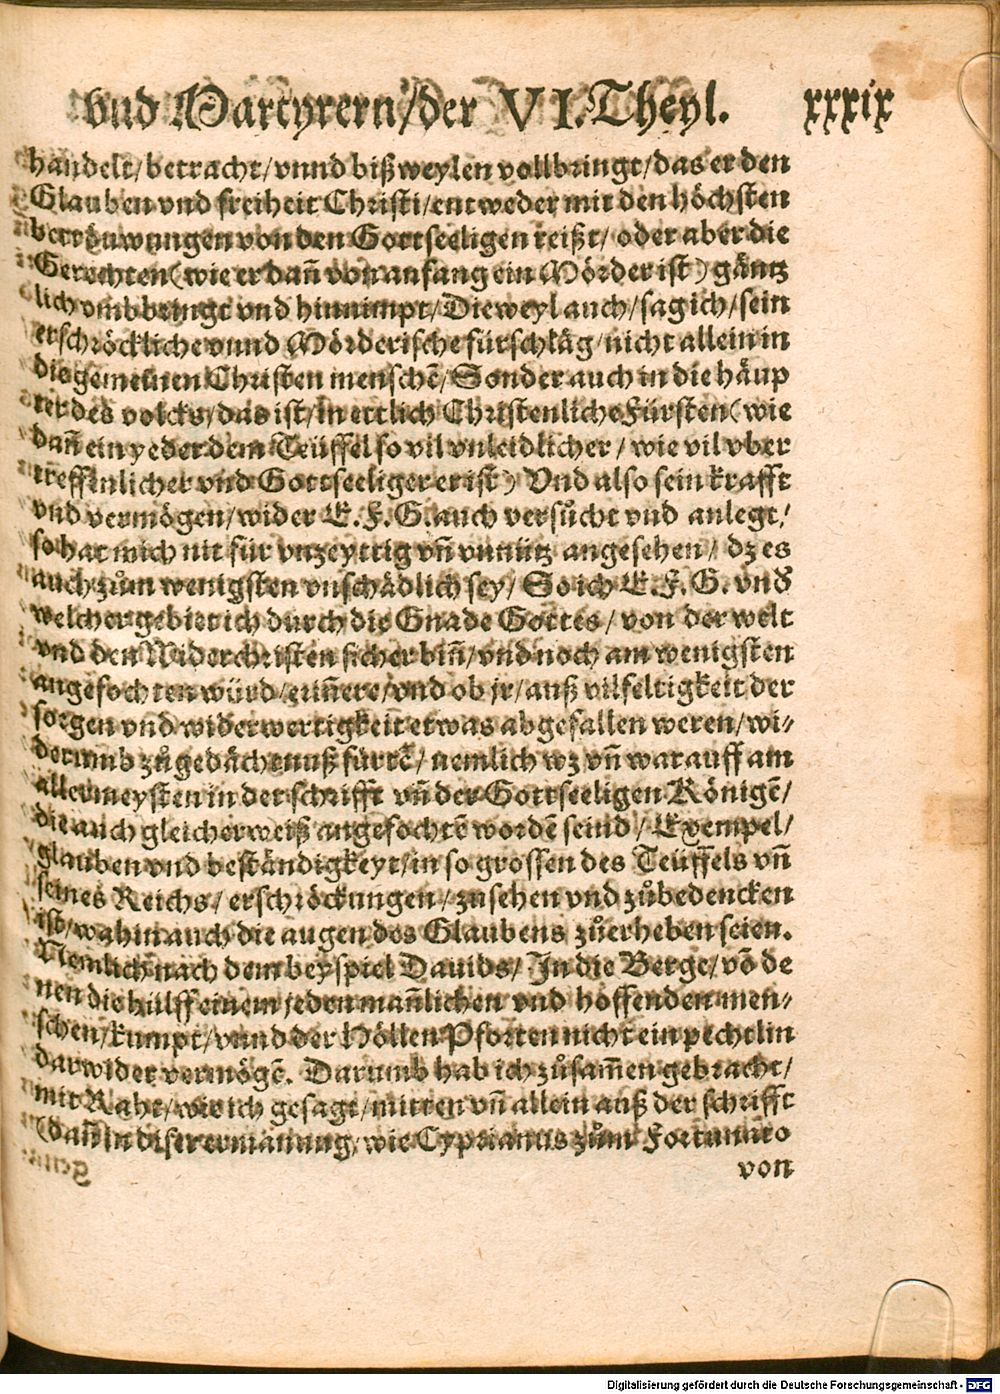 vnd Martyrern/der VI. Theyl. xxxix
handelt/betracht/vnnd bißweylen vollbringt/das er den
Glauben vnd freiheit Christi/entweder mit den höchsten
betröuwungen von den Gottseeligen reißt/oder aber die
Gerechten (wie er dañ von anfang ein Mörder ist) gäntz
lich vmbbringt vnd hinnimpt/Dieweyl auch/sag ich/sein
erschröckliche vnnd Mörderische fürschläg/nicht allein in
die gemeinen Christen menschē/Sonder auch in die häup
ter des volcks/das ist/in ettlich Christenliche Fürsten (wie
dañ ein yeder dem Teüffel so vil vnleidlicher/wie vil vber
treffenlicher vnd Gottseeliger er ist) Vnd also sein krafft
vnd vermögen/wider E. F. G. auch versůcht vnd anlegt/
so hat mich nit für vnzeyttig vñ vnnütz angesehen/dz es
auch zům wenigsten vnschädlich sey/So ich E. F. G. vnd
welcher gebiet ich durch die Gnade Gottes/von der welt
vnd den Widerchristen sicher biñ/vnd noch am wenigsten
angefochten würd/eriñere/vnd ob jr/auß vilfeltigkeit der
sorgen vnd widerwertigkeit etwas abgefallen weren/wi-
derumb zů gedächtnuß fürrē/nemlich wz vñ warauff am
allermeysten in der schrifft vñ der Gottseeligen Königē/
die auch gleicherweiß angefochtē wordē seind/Exempel/
glauben vnd beständigkeyt/in so grossen des Teüffels vñ
seines Reichs/erschröckungen/zusehen vnd zůbedencken
ist/wahin auch die augen des Glaubens zůerheben seien.
Nemlich nach dem beyspiel Dauids/In die Berge/vō de
nen die hülff einem jeden mañlichen vnd hoffenden men-
schen/kumpt/vnnd der Höllen Pforten nicht ein pechtlin
darwider vermögē. Darumb hab ich zůsam̄en gebracht/
mit Raht/wie ich gesagt/mitten vñ allein auß der schrifft
(dañ in diser ermanung/wie Cyprianus zům Fortunato
von